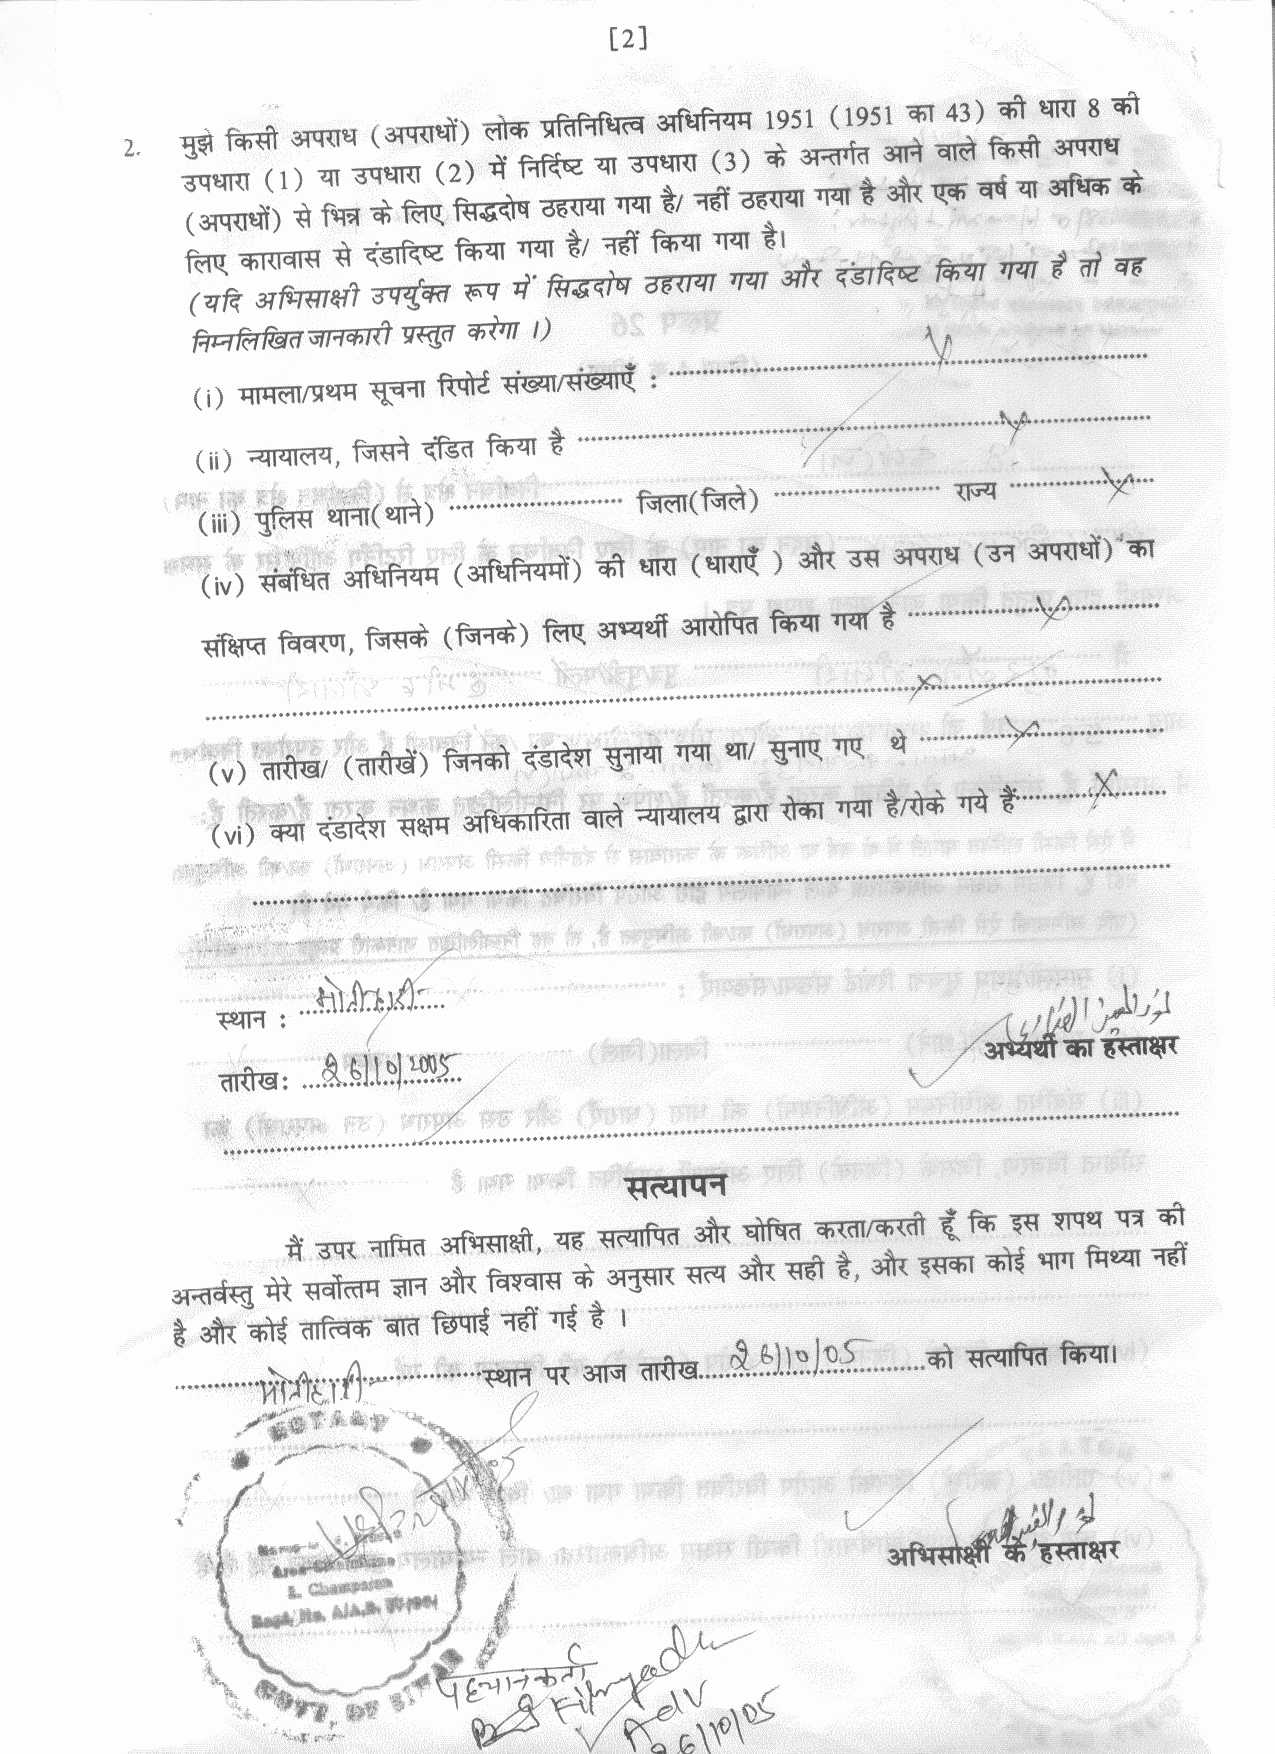 [2]
2. मुझे किसी अपराध (अपराधों) लोक प्रतिनिधित्व अधिनियम 1951 (1951 का 43) की धारा 8 की
उपधारा (1) या उपधारा (2) में निर्दिष्ट या उपधारा (3) के अन्तर्गत आने वाले किसी अपराध
(अपराधों) से भिन्न के लिए सिद्धदोष ठहराया गया है/ नहीं ठहराया गया है और एक वर्ष या अधिक के
लिए कारावास से दंडादिष्ट किया गया है/ नहीं किया गया है।
(यदि अभिसाक्षी उपर्युक्त रूप में सिद्धदोष ठहराया गया और दंडादिष्ट किया गया है तो वह
निम्नलिखित जानकारी प्रस्तुत करेगा ।)
(i) मामला/प्रथम सूचना रिपोर्ट संख्या/संख्याएँ : X
(ii) न्यायालय, जिसने दंडित किया है X
(iii) पुलिस थाना(थाने) जिला(जिले) राज्य X
(iv) संबंधित अधिनियम (अधिनियमों) की धारा (धाराएँ ) और उस अपराध (उन अपराधों) का
संक्षिप्त विवरण, जिसके (जिनके) लिए अभ्यर्थी आरोपित किया गया है X
X
(v) तारीख/ (तारीखें) जिनको दंडादेश सुनाया गया था/ सुनाए गए थे X
(vi) क्या दंडादेश सक्षम अधिकारिता वाले न्यायालय द्वारा रोका गया है/रोके गये हैं X
स्थान : मोतीहारी
तारीख: 26/10/2005
अभ्यर्थी का हस्ताक्षर
सत्यापन
मैं उपर नामित अभिसाक्षी, यह सत्यापित और घोषित करता/करती हूँ कि इस शपथ पत्र की
अन्तर्वस्तु मेरे सर्वोत्तम ज्ञान और विश्वास के अनुसार सत्य और सही है, और इसका कोई भाग मिथ्या नहीं
है और कोई तात्विक बात छिपाई नहीं गई है ।
मोतीहारी स्थान पर आज तारीख 26/10/05 को सत्यापित किया।
NOTARY
E. Champaran
GOVT. OF BIHAR
अभिसाक्षी के हस्ताक्षर
पहचानकर्ता
Adv
26/10/05